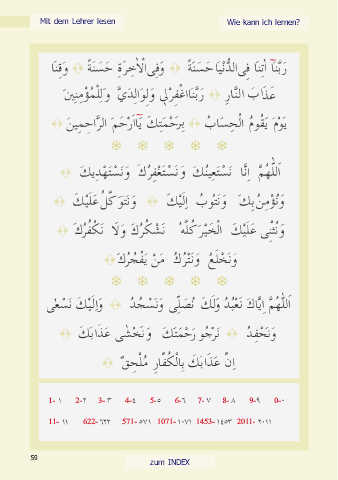 Mit dem Lehrer lesen
Wie kann ich lernen?
رَبَّنَٓا اٰتِنَا فِى الدُّنْيَا حَسَنَةً ۞ وَفِى الْاٰخِرَةِ حَسَنَةً ۞ وَقِنَا
عَذَابَ النَّارِ ۞ رَبَّنَا اغْفِرْلِى وَلِوَالِدَيَّ وَلِلْمُؤْمِنِينَ
يَوْمَ يَقُومُ الْحِسَابُ ۞ بِرَحْمَتِكَ يَٓا اَرْحَمَ الرَّاحِمِينَ ۞
اَللّٰهُمَّ اِنَّا نَسْتَعِينُكَ وَنَسْتَغْفِرُكَ وَنَسْتَهْدِيكَ ۞
وَنُؤْمِنُ بِكَ وَنَتُوبُ اِلَيْكَ ۞ وَنَتَوَكَّلُ عَلَيْكَ ۞
وَنُثْنِى عَلَيْكَ الْخَيْرَ كُلَّهُ نَشْكُرُكَ وَلَا نَكْفُرُكَ ۞
وَنَخْلَعُ وَنَتْرُكُ مَنْ يَفْجُرُكَ ۞
اَللّٰهُمَّ اِيَّاكَ نَعْبُدُ وَلَكَ نُصَلِّى وَنَسْجُدُ ۞ وَاِلَيْكَ نَسْعٰى
وَنَحْفِدُ ۞ نَرْجُو رَحْمَتَكَ وَنَخْشٰى عَذَابَكَ ۞
اِنَّ عَذَابَكَ بِالْكُفَّارِ مُلْحِقٌ ۞
1- ١ 2-٢ 3- ٣ 4-٤ 5-٥ 6-٦ 7- ٧ 8- ٨ 9-٩ 0-٠
11- ١١ 622- ٦٢٢ 571- ٥٧١ 1071- ١٠٧١ 1453- ١٤٥٣ 2011- ٢٠١١
59
zum INDEX